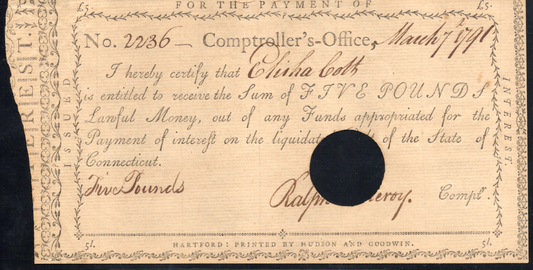 FOR THE PAYMENT OF
£5. £5.
No. 2236 — Comptroller's-Office, March 7 1791
I hereby certify that Elisha Colt
is entitled to receive the Sum of FIVE POUNDS
Lawful Money, out of any Funds appropriated for the
Payment of interest on the liquidat of the State of
Connecticut.
Five Pounds
Ralph eroy. Comptr.
5l. HARTFORD: PRINTED BY HUDSON AND GOODWIN. 5l.
ISSUED
INTEREST.